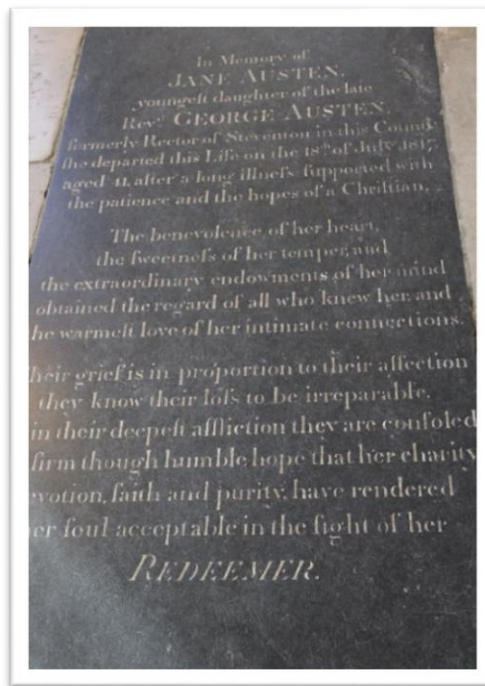 In Memory of
JANE AUSTEN,
youngeſt daughter of the late
Revd GEORGE AUSTEN,
formerly Rector of Steventon in this County
ſhe departed this Life on the 18th of July 1817,
aged 41, after a long illneſs ſupported with
the patience and the hopes of a Chriſtian.
The benevolence of her heart,
the ſweetneſs of her temper, and
the extraordinary endowments of her mind
obtained the regard of all who knew her and
he warmeſt love of her intimate connections.
heir grief is in proportion to their affection
they know their loſs to be irreparable,
in their deepeſt affliction they are conſoled
firm though humble hope that her charity
evotion, faith and purity, have rendered
er ſoul acceptable in the ſight of her
REDEEMER.